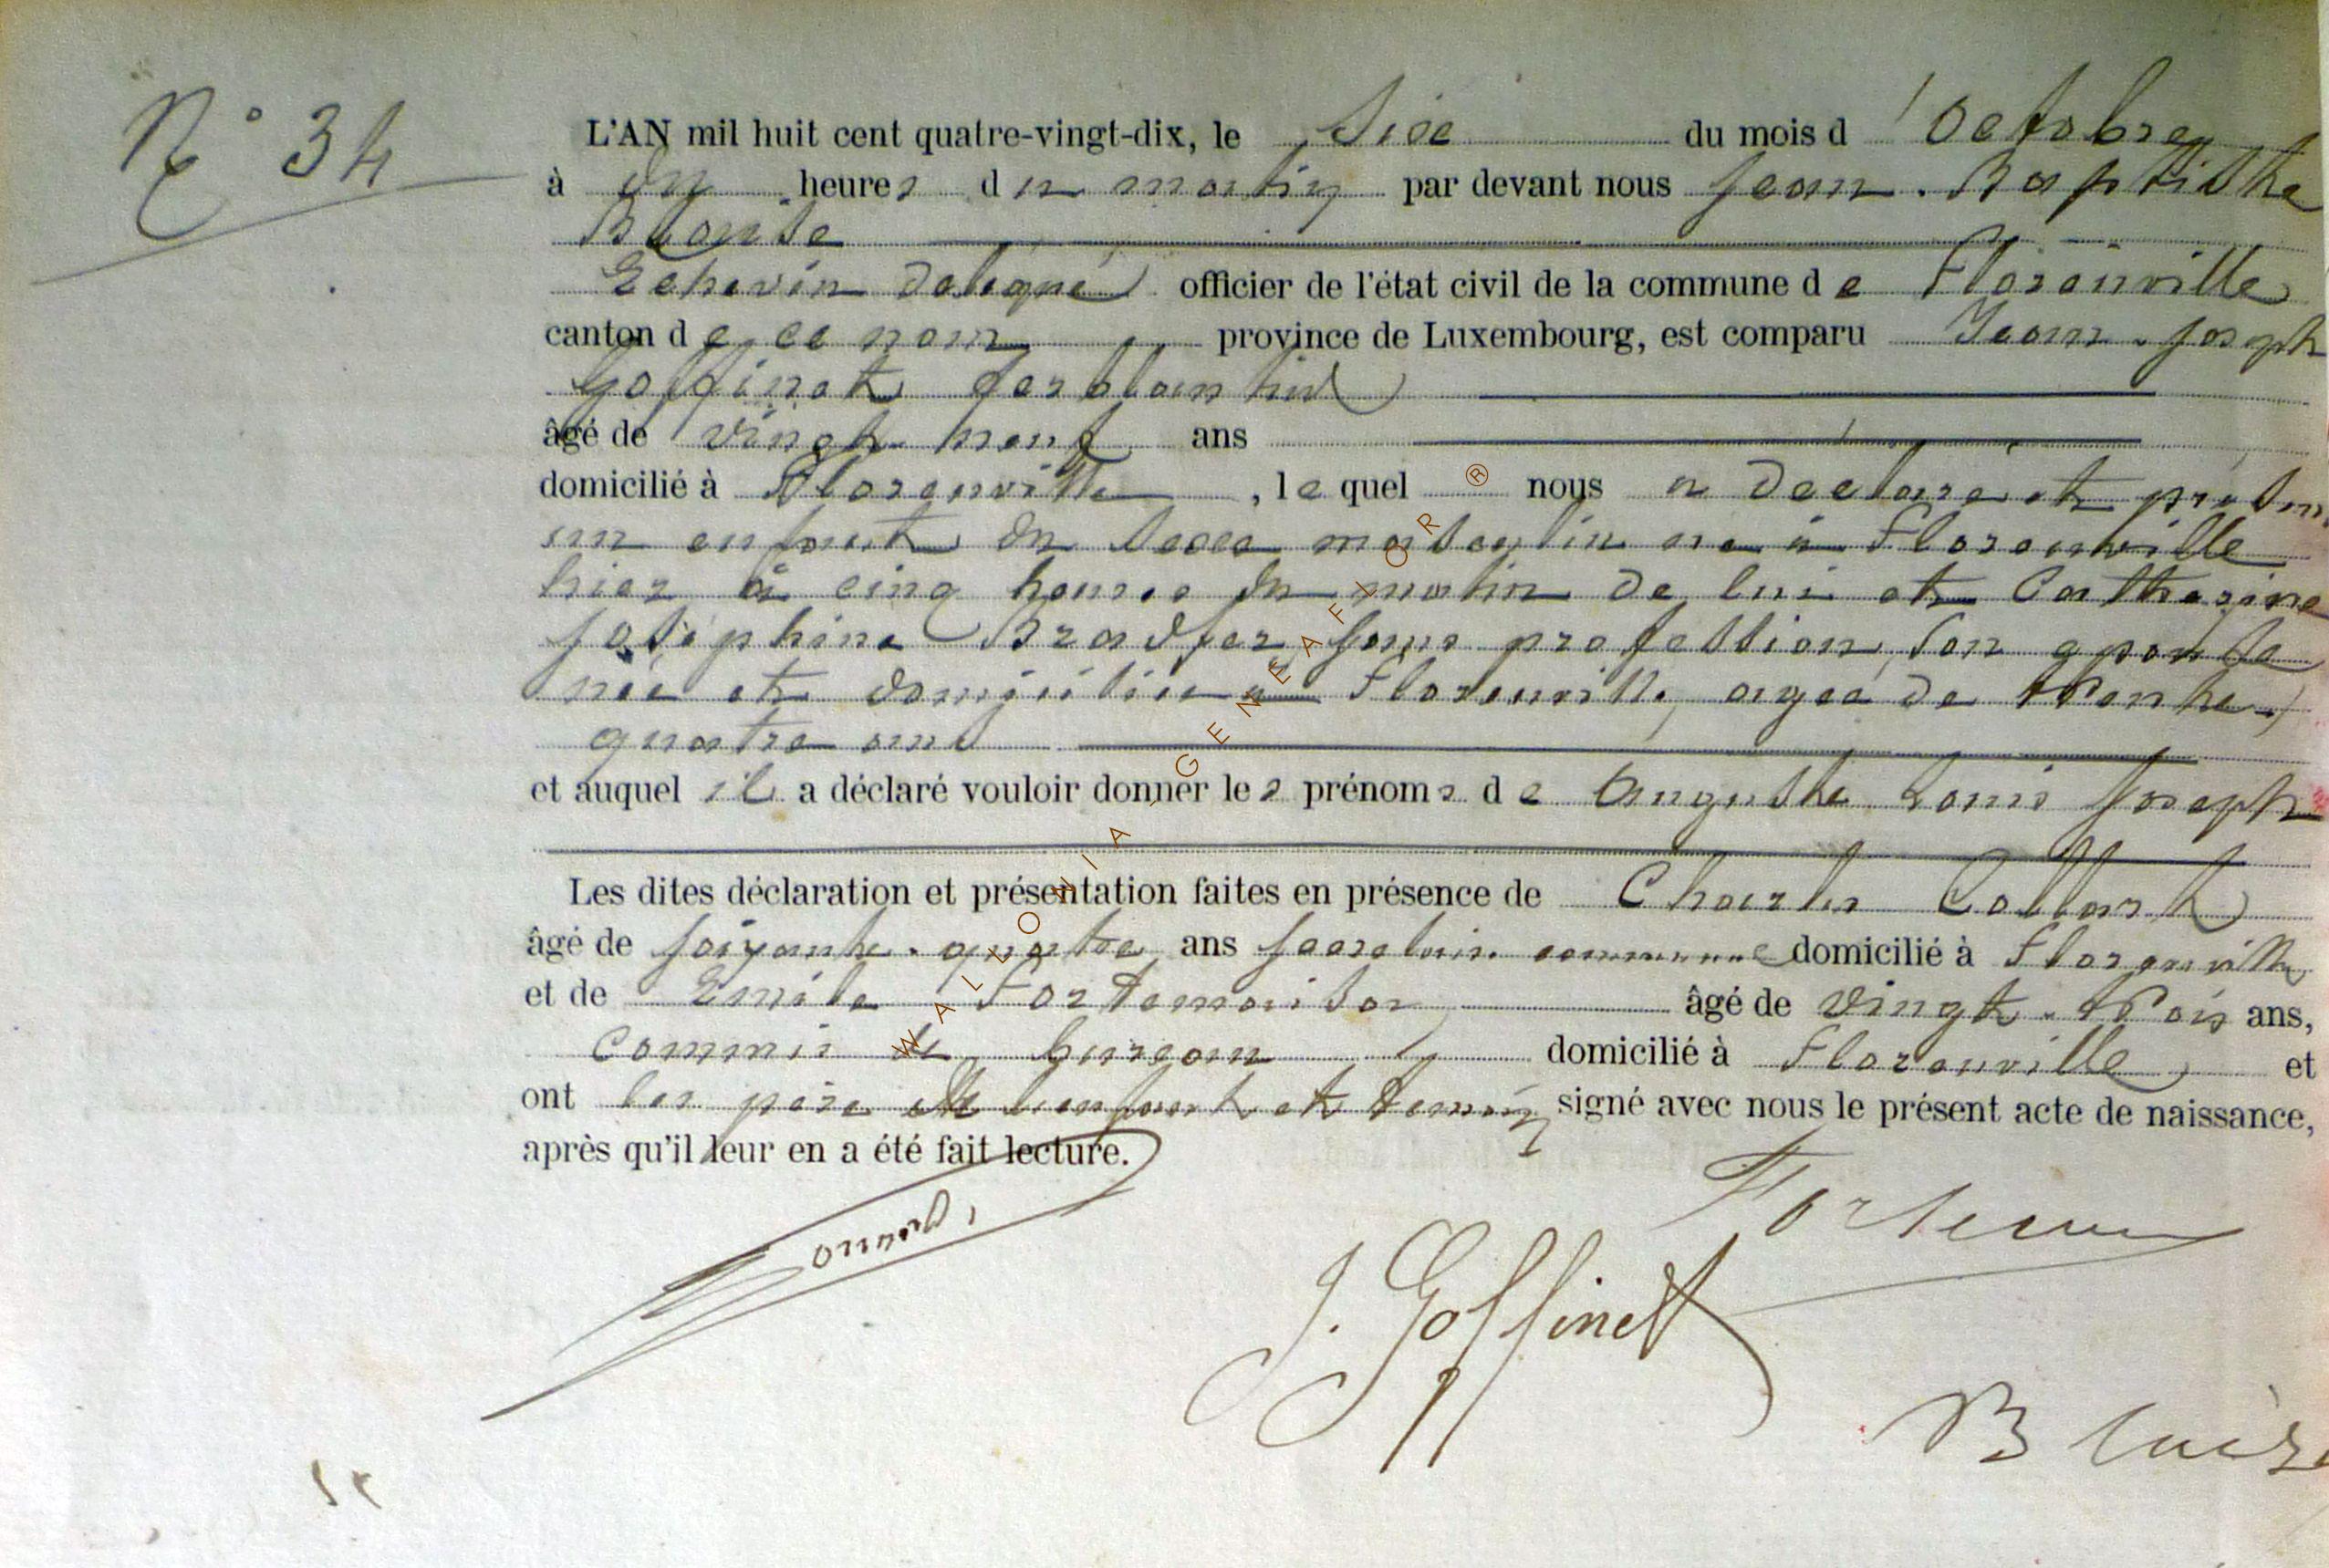 N° 34
L'AN mil huit cent quatre-vingt-dix, le Six du mois d'Octobre
à dix heures du matin par devant nous Jean-Baptiste
Blaise
Echevin délégué officier de l'état civil de la commune de Florenville
canton de ce nom province de Luxembourg, est comparu Jean-Joseph
Goffinet ferblantier
âgé de vingt neuf ans
domicilié à Florenville, lequel nous a déclaré et présen
un enfant du sexe masculin né à Florenville
hier à cinq heures du matin de lui et Catherine
Joséphine Bradfer, sans profession, son épouse
née et domiciliée à Florenville, agée de trente-
quatre ans
et auquel il a déclaré vouloir donner les prénoms de Auguste Louis Joseph
Les dites déclaration et présentation faites en présence de Charles Collart
âgé de soixante-quatre ans domicilié à Florenville
et de Emile Fortemaison âgé de vingt-trois ans,
commis de bureau domicilié à Florenville et
ont les père de l'enfant et témoins signé avec nous le présent acte de naissance,
après qu'il leur en a été fait lecture.
J. Goffinet
WALLONIA GENEAFLOR ®